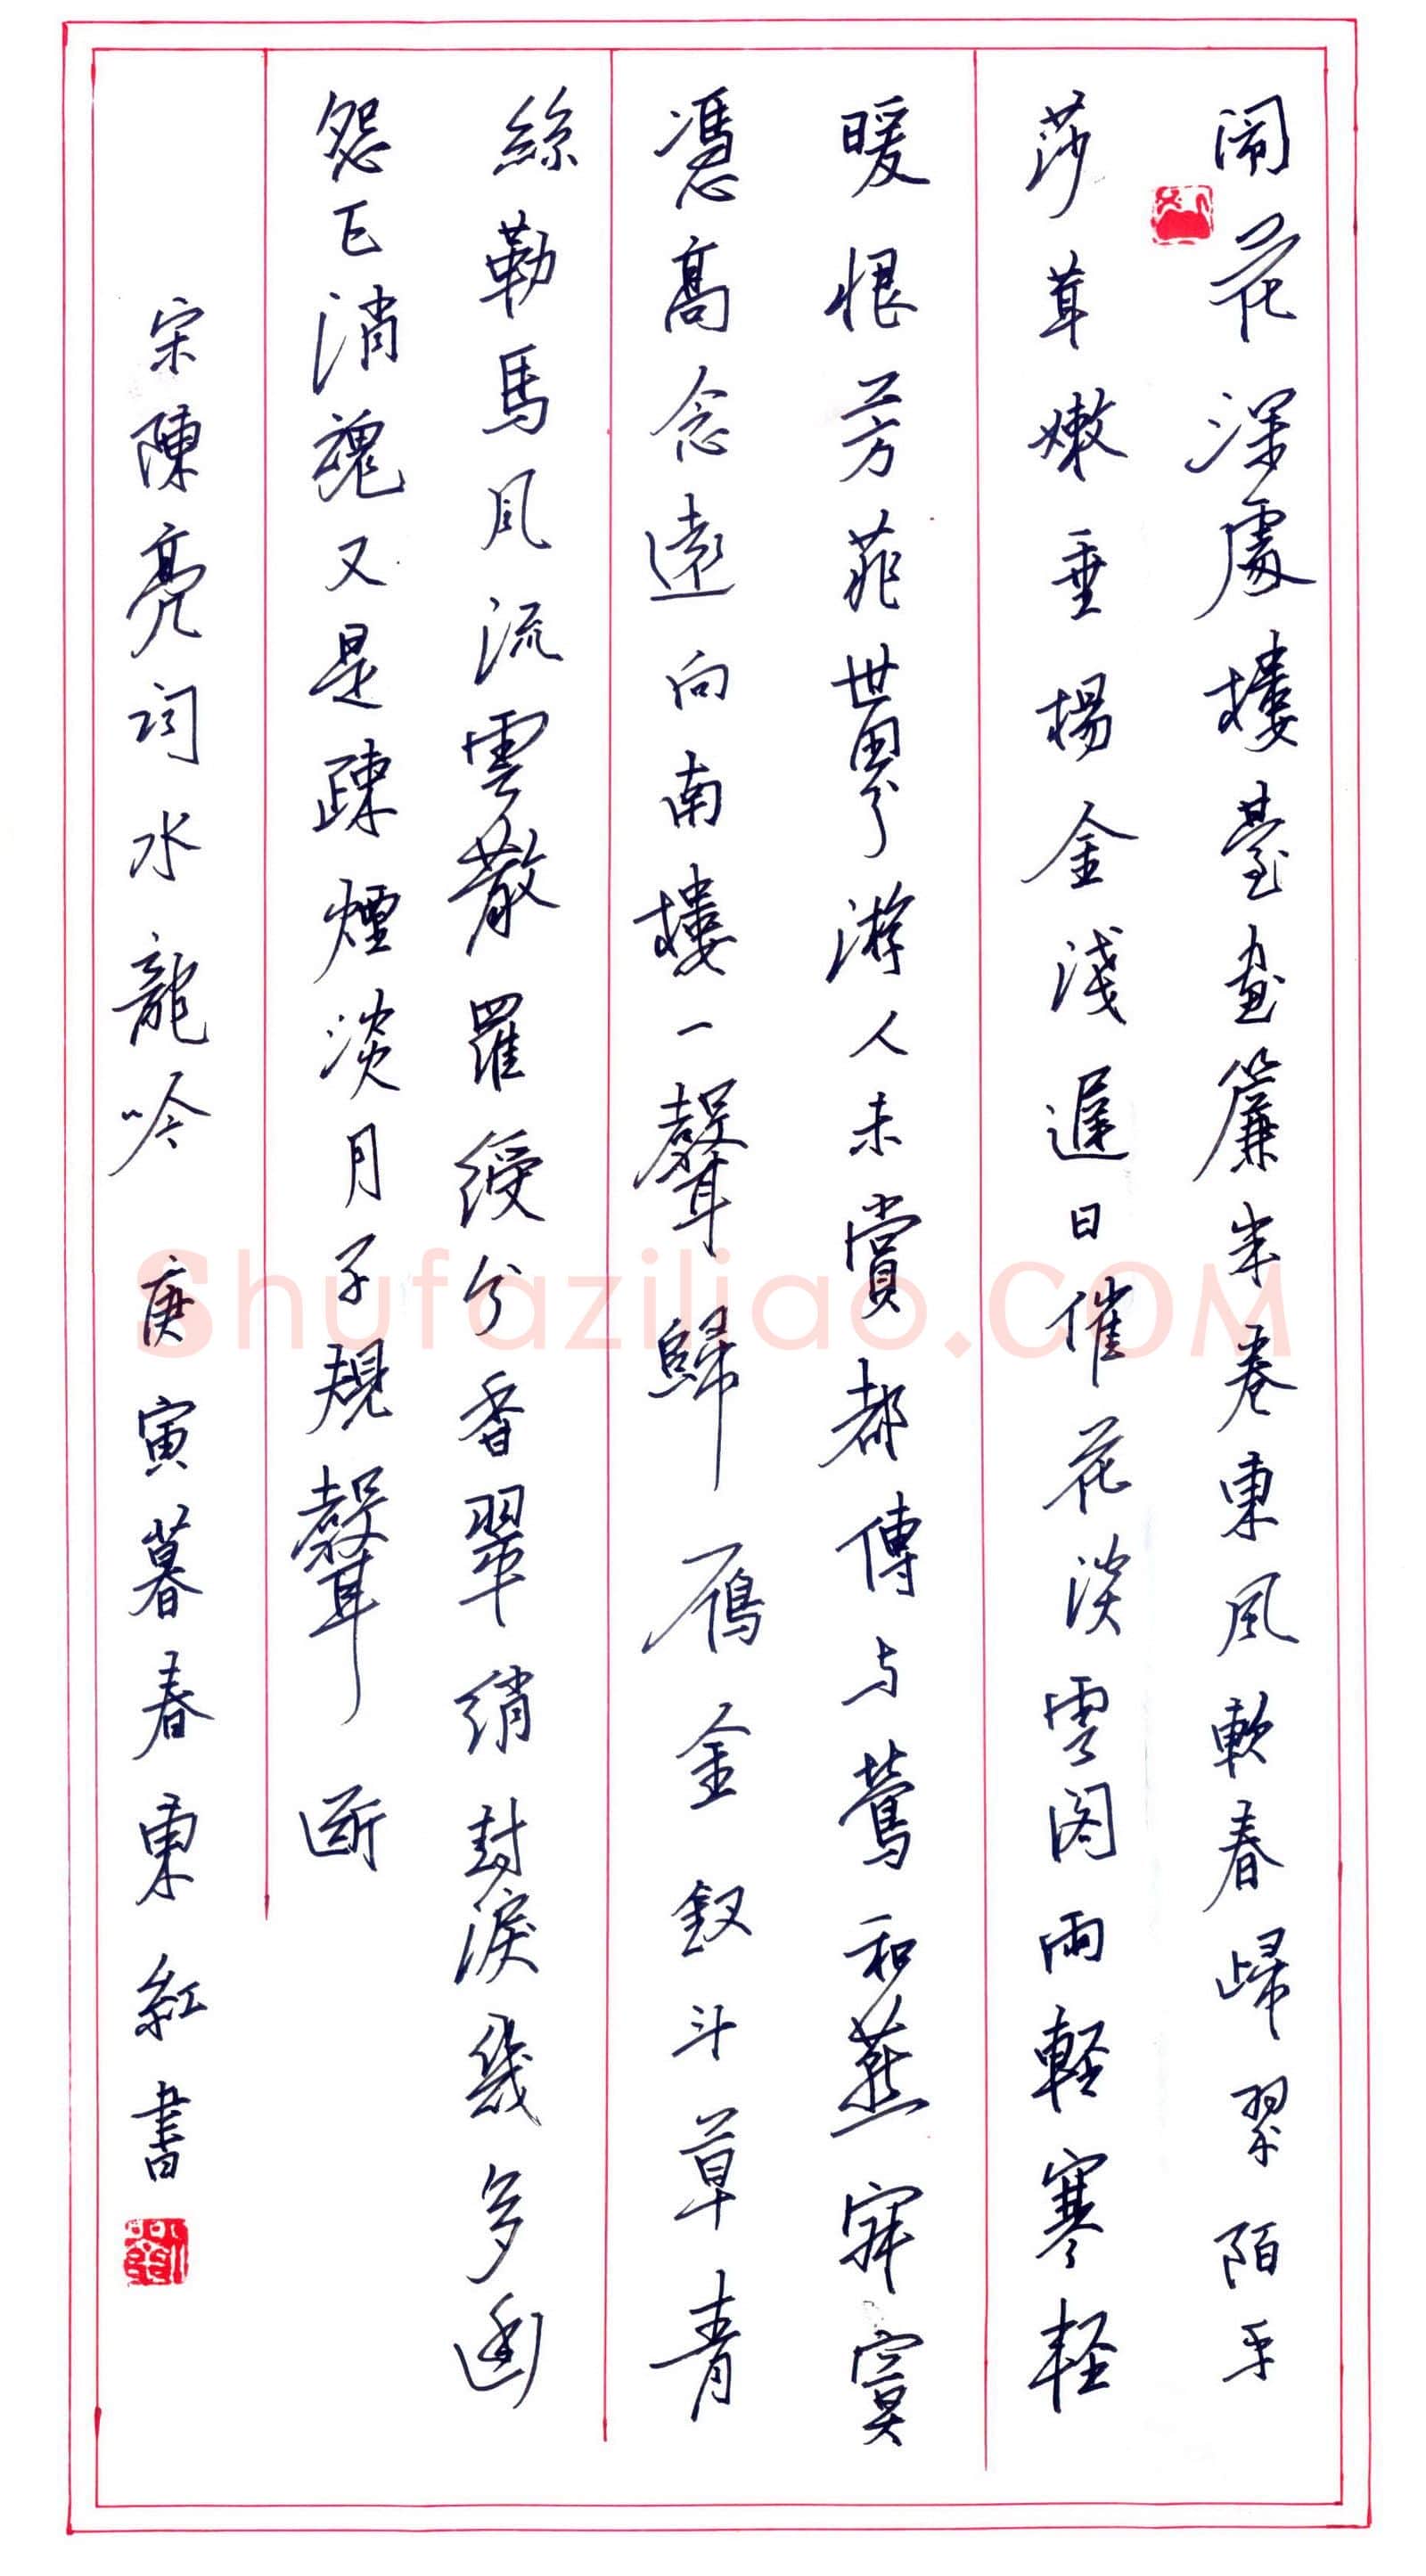 鬧花深處樓臺畫簾半卷東風軟春歸翠陌平
莎茸嫩垂楊金淺遲日催花淡雲閣雨輕寒輕
暖恨芳菲世界游人未賞都傳与鶯和燕寂寞
憑高念遠向南樓一聲歸雁金釵斗草青
絲勒馬風流雲散羅綬分香翠綃封淚幾多幽
怨正消魂又是疎煙淡月子規聲斷
宋陳亮詞水龍吟 庚寅暮春東紅書
Shufaziliao.COM